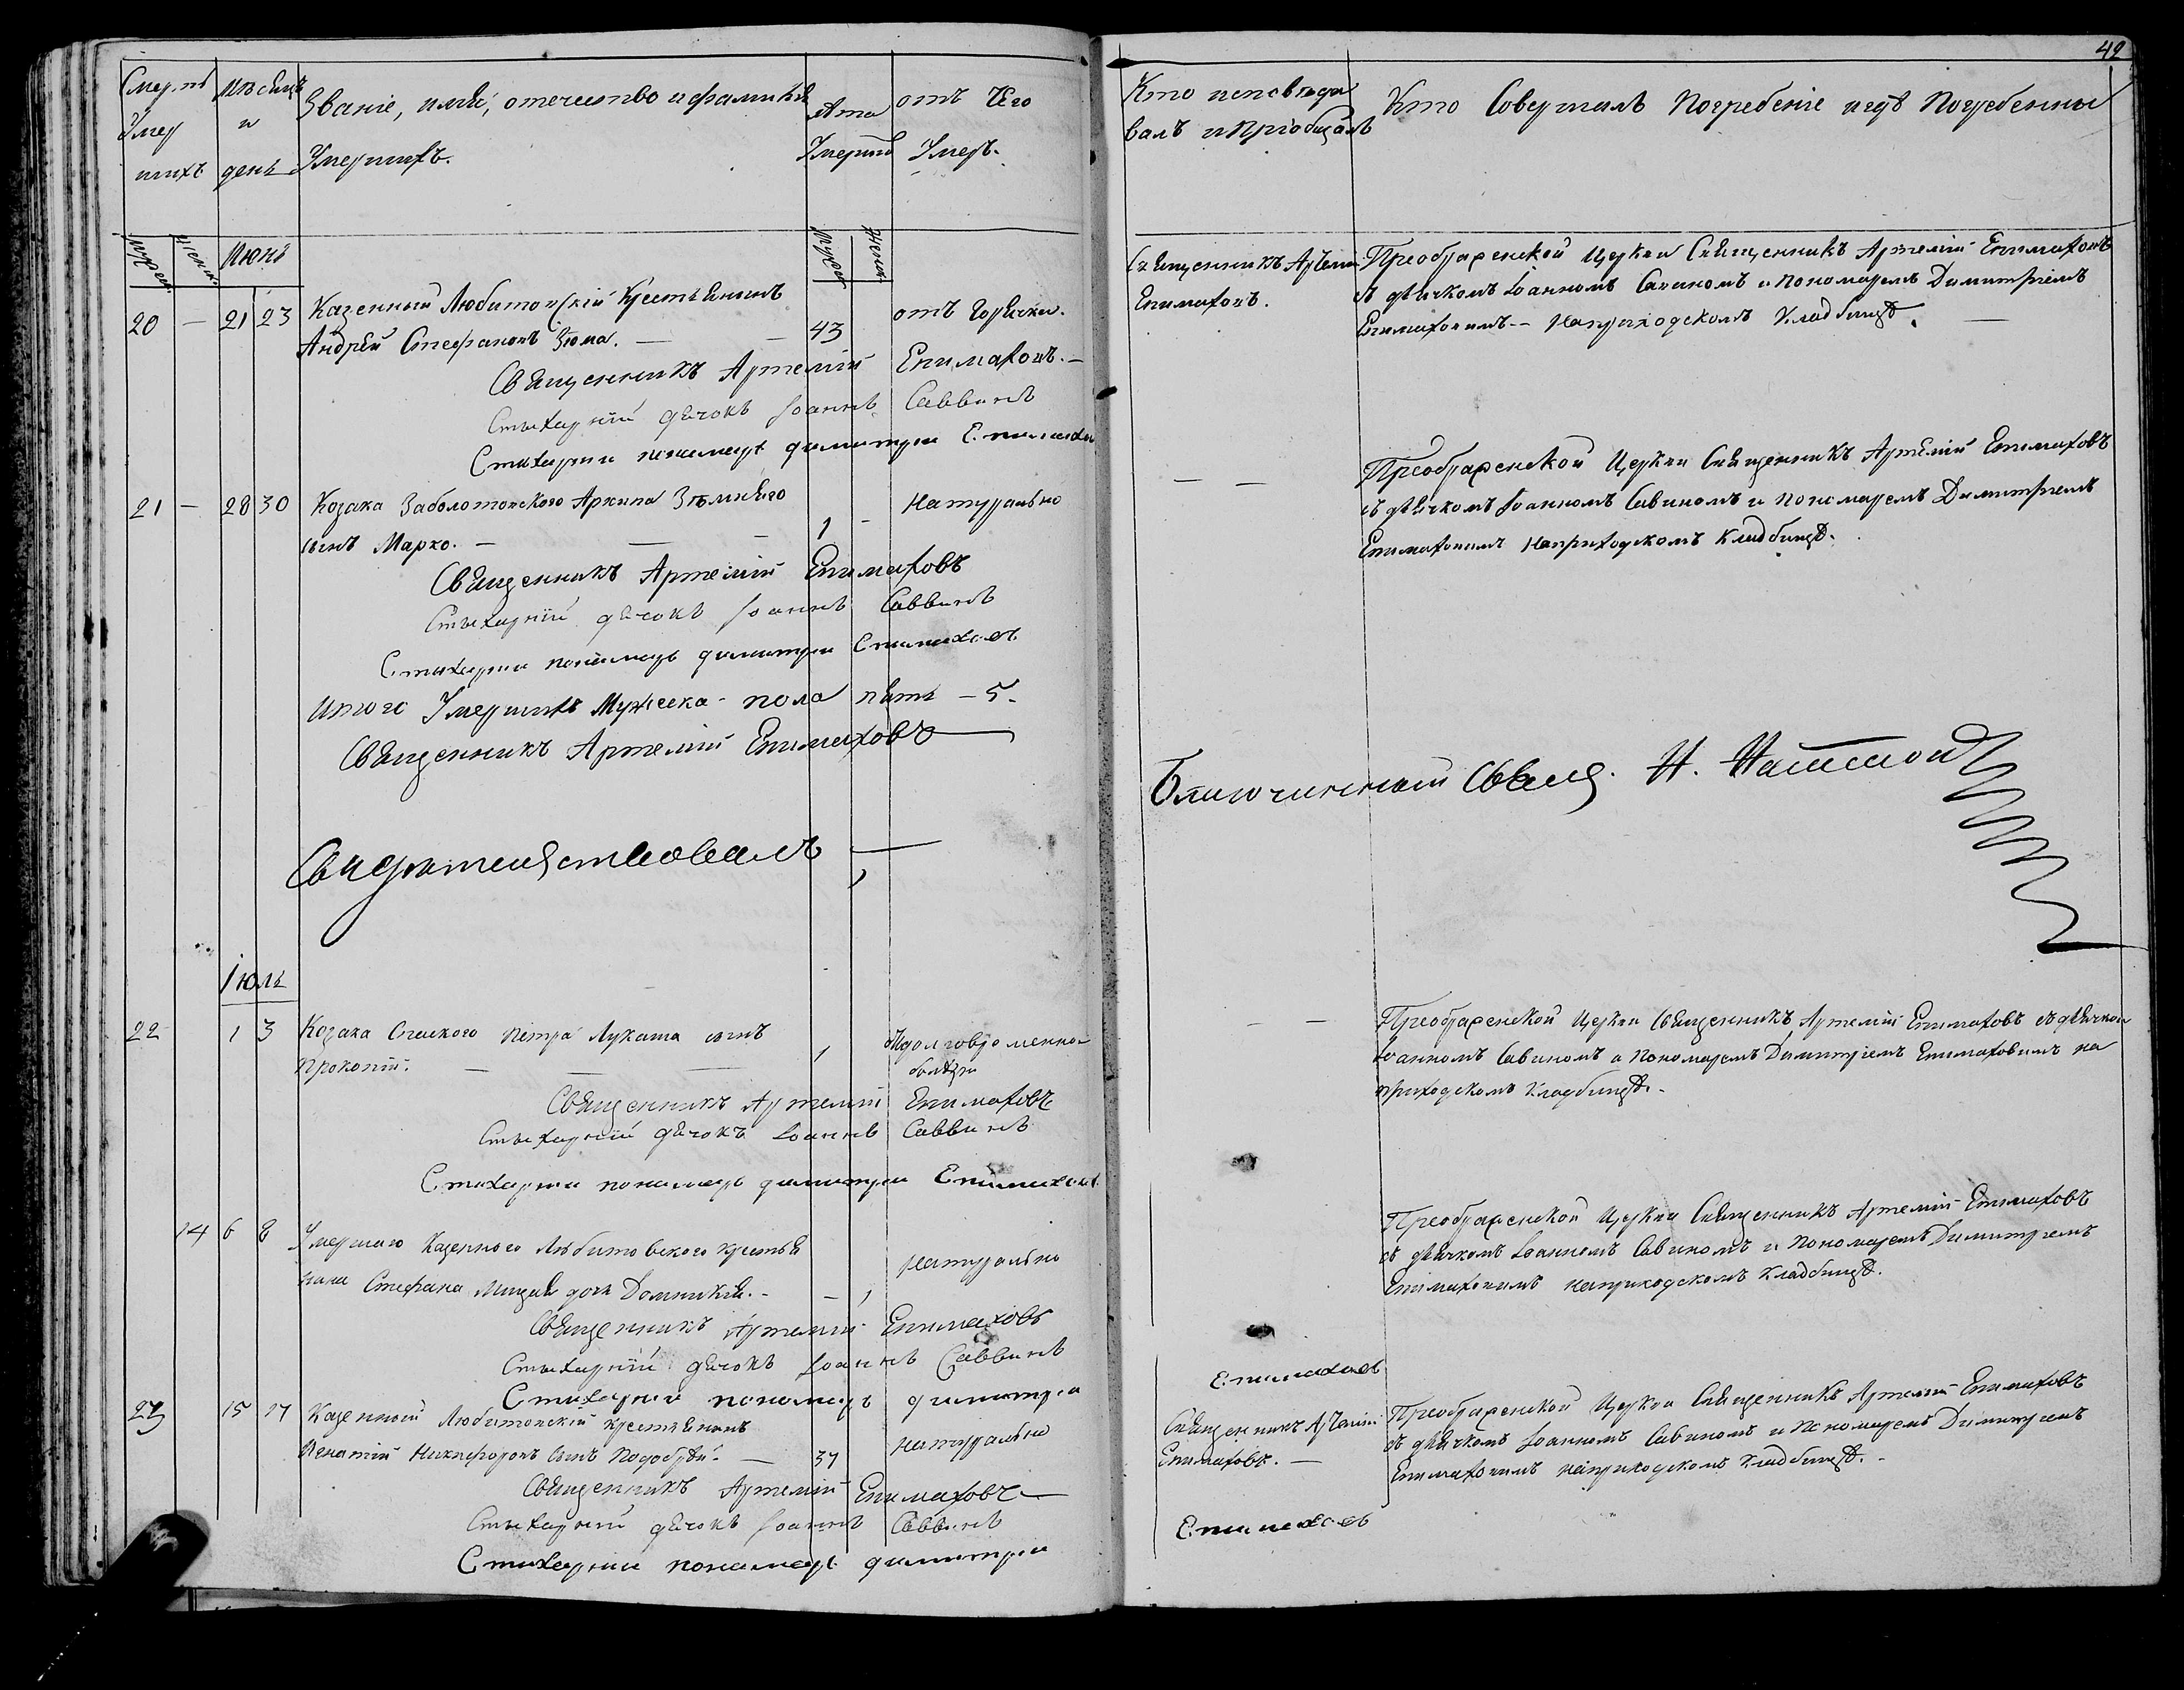 42
Счетъ Умер шихъ
Мѣсяцъ и день
Званіе, имя, отечество и фамилія Умершихъ.
Лѣта Умершихъ
отъ Чего Умеръ.
Кто исповѣды валъ и Пріобщалъ
Кто Совершалъ Погребеніе и гдѣ Погребенны
мужск. женск. Июнь мужск. женск.
20 — 21 23 Казенный Любитовскій Крестьянинъ
Андрей Стефановъ Зюма. — — 43 отъ Горячки.
Священникъ Артемій Епимаховъ. —
Стыхарный дячокъ Іоаннъ Саввинъ
Стихарни пономарь димитри Епимахов
Священникъ Артемій
Епимаховъ.
Преображенской Церкви Священникъ Артемій Епимаховъ
съ дьячкомъ Іоанномъ Савиномъ и пономаремъ Димитріемъ
Епимаховимъ — На приходскомъ Кладбищѣ. —
21 — 28 30 Козака Заболотовского Архипа
сынъ Марко. — — — 1 - Натурально
Священникъ Артемій Епимаховъ
Стыхарній дячокъ Іоаннъ Саввинъ
Стихарни пономарь димитри Епимаховъ
— —
Преображенской Церкви Священникъ Артемій Епимаховъ
съ дьячкомъ Іоанномъ Савиномъ и пономаремъ Димитріемъ
Епимаховимъ На приходскомъ Кладбищѣ.
Итого Умершихъ Мужеска - пола пять — 5.
Священникъ Артемій Епимаховъ
Свидѣтельствовалъ —
Благочинный Свящ. Н.
Іюль
22 1 3 Козака Спаского Петра Лукаша сынъ
Прокопій. — — — 1 Отдолговременной
болѣзни
Священникъ Артемій Епимаховъ
Стыхарній дячокъ Іоаннъ Саввинъ
Стихарни пономарь димитри Епимаховъ
— —
Преображенской Церкви Священникъ Артемій Епимаховъ съ дьячком
Іоанномъ Савиномъ и пономаремъ Димитріемъ Епимаховимъ на
приходскомъ Кладбищѣ. -
14 6 8 Умершаго Казенного Любитовского крестья
нина Стефана дочь Домникія. - — 1 Натурально
Священникъ Артемій Епимаховъ
Стыхарній дячокъ Іоаннъ Саввинъ
Стихарни пономарь димитри
Епимаховъ
Преображенской Церкви Священникъ Артемій Епимаховъ
съ дьячкомъ Іоанномъ Савиномъ и пономаремъ Димитріемъ
Епимаховимъ на приходскомъ Кладбищѣ.
23 15 17 Казенный Любитовскій крестьянинъ
Игнатій Никифоровъ Сынъ Подобрѣй. — 37 Натурально
Священникъ Артемій Епимаховъ —
Стыхарній дячокъ Іоаннъ Саввинъ
Стихарни пономарь димитри
Епимаховъ
Священникъ Артемій
Епимаховъ. —
Преображенской Церкви Священникъ Артемій Епимаховъ
съ дьячкомъ Іоанномъ Савиномъ и Пономаремъ Димитріемъ
Епимаховимъ на приходскомъ Кладбищѣ. -